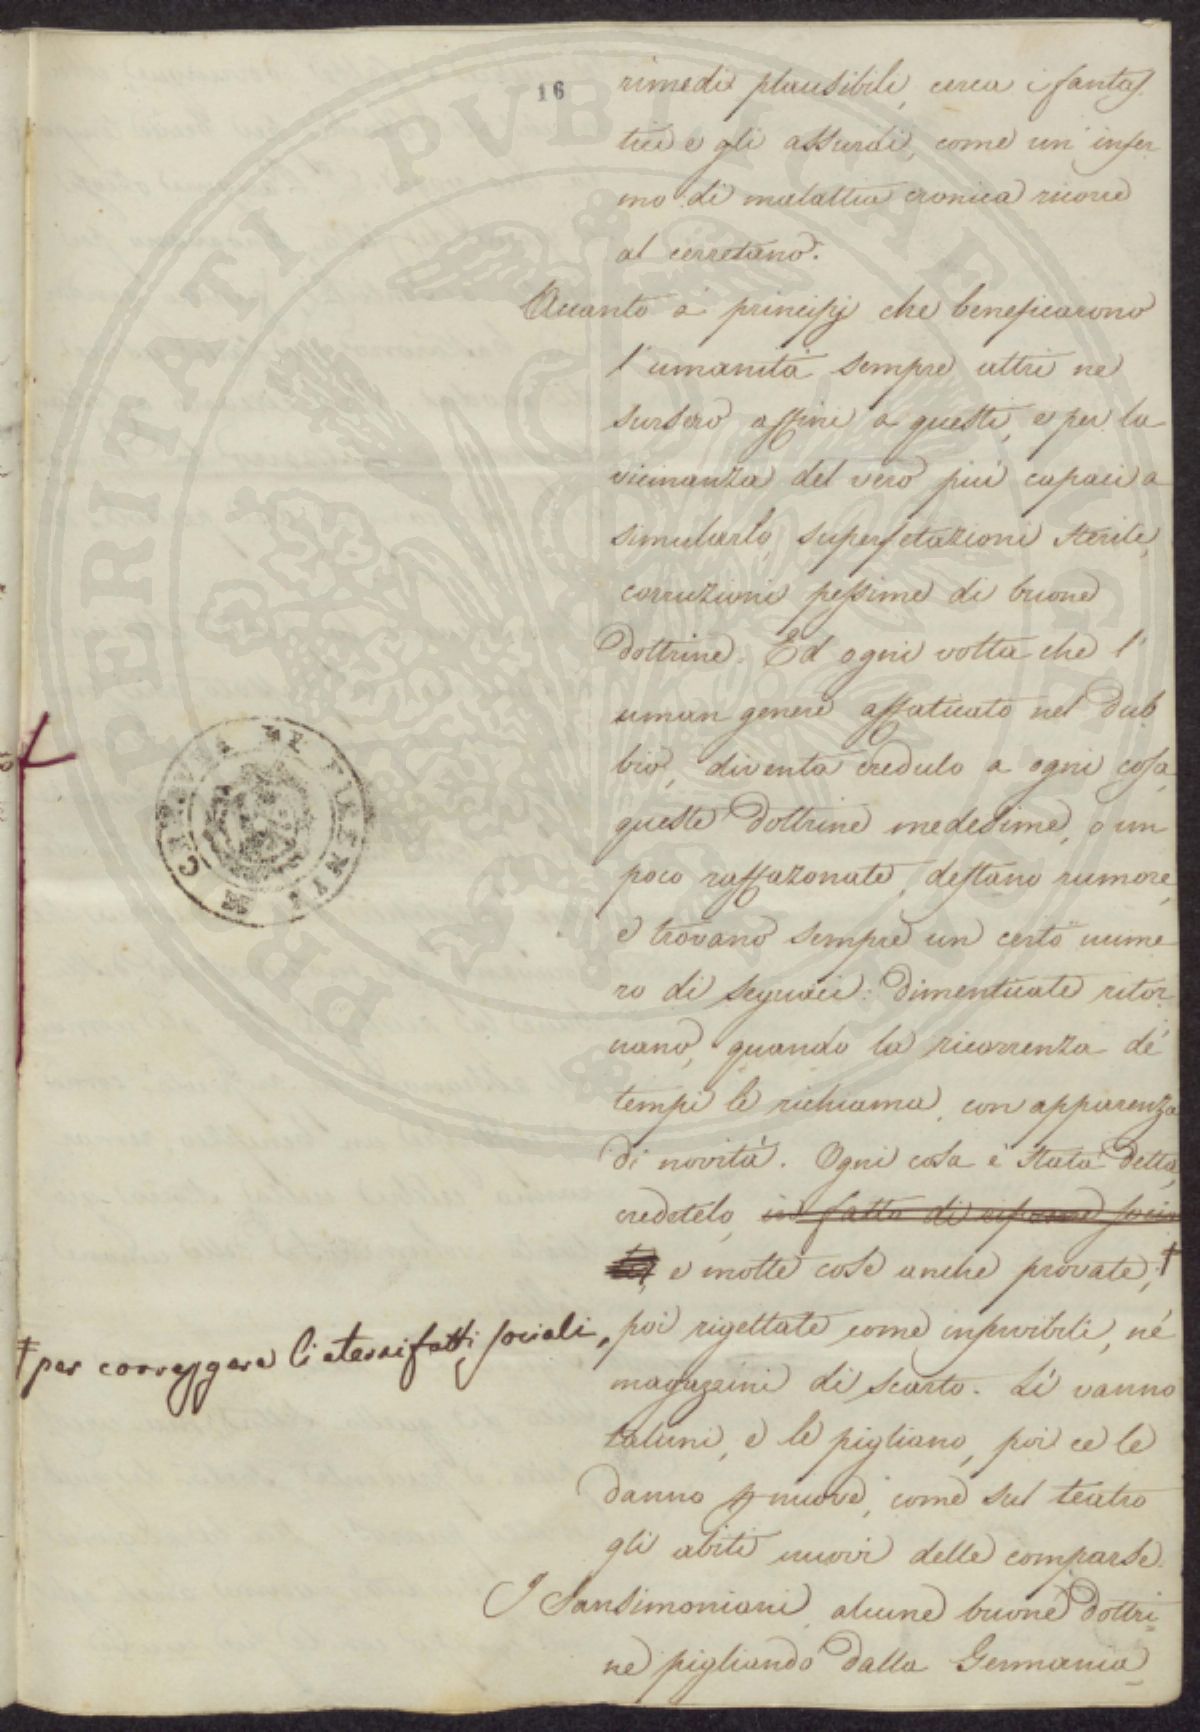 16
rimedi plausibili, cerca i fantas
tici e gli assurdi, come un infer
mo di malattia cronica ricorre
al cerretano.
Quanto a' principj che beneficarono
l'umanità sempre altri ne
sursero affini a questi, e per la
vicinanza del vero più capaci a
simularlo, superfetazioni sterili,
corruzioni pessime di buone
dottrine. Ed ogni volta che l'
uman genere affaticato nel dub
bio, diventa credulo a ogni cosa,
queste dottrine medesime, o un
poco raffazonate, destano rumore,
e trovano sempre un certo nume
ro di seguaci: dimenticate ritor
nano, quando la ricorrenza de'
tempi le richiama, con apparenza
di novità. Ogni cosa è stata detta,
credetelo, in fatto di riforme socia
li, e molte cose anche provate, †
† per correggere li stessi fatti sociali,
poi rigettate come inservibili, ne'
magazzini di scarto. Lì vanno
taluni, e le pigliano, poi ce le
danno p nuove, come sul teatro
gli abiti nuovi delle comparse.
I Sansimoniani alcune buone dottri=
ne pigliando dalla Germania
PERITATI PVBLICAE